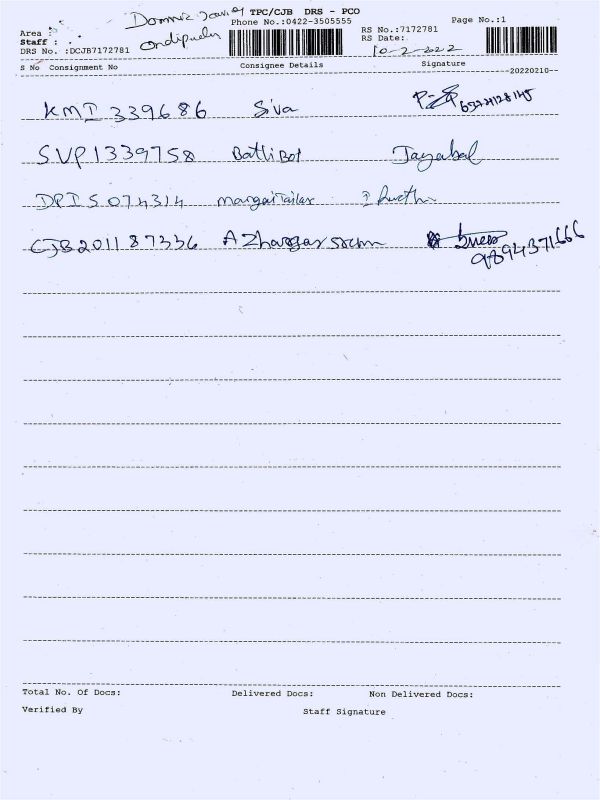 TPC/CJB DRS - PCO
Phone No.:0422-3505555
Page No.:1
Area :
Staff :
DRS No. :DCJB7172781
RS No.:7172781
RS Date:
10-2-2022
S No Consignment No Consignee Details Signature
20220210
KMI 339686 Siva
SVP1339758 BatliBoi Jayabal
DPI 5074314 margaiTailar
CJB201187336 Azhagar
9894371666
Total No. Of Docs: Delivered Docs: Non Delivered Docs:
Verified By Staff Signature